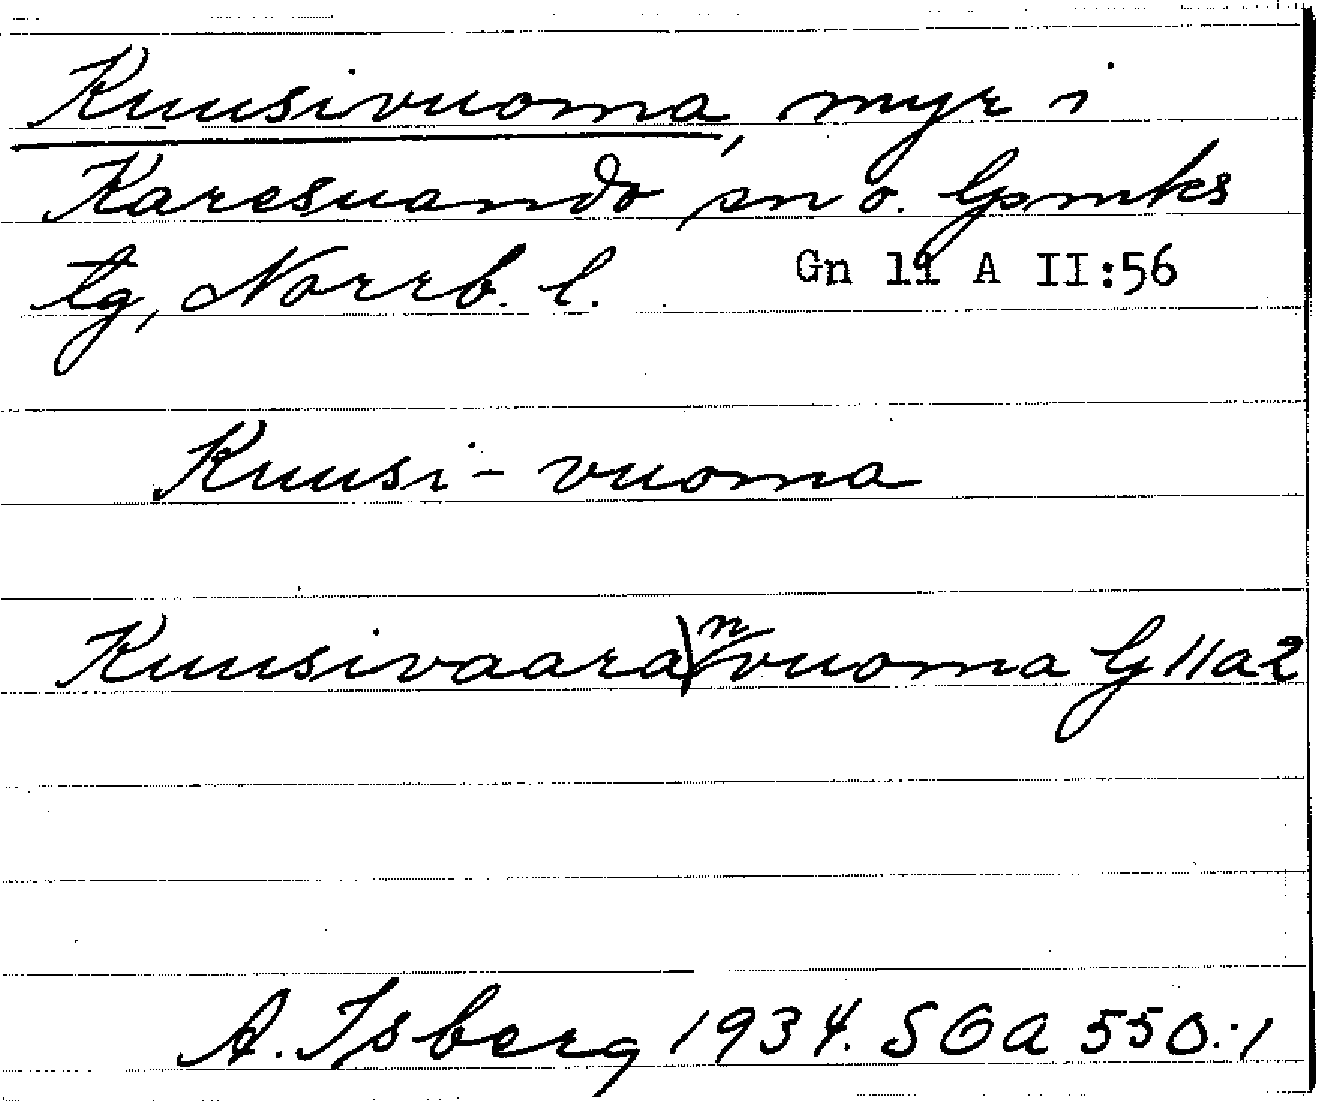 Kuusivuoma, myr i
Karesuando sn o. lpmks
tg, Norrb. l. Gn 11 A II:56
Kuusi - vuoma
Kuusivaara\nvuoma G 11a2
A. Isberg 1934. SOA 550:1